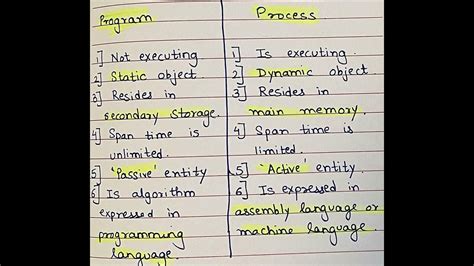 Program
1] Not executing
2] Static object.
3] Resides in
secondary storage.
4] Span time is
unlimited.
5] 'Passive' entity
6] Is algorithm
expressed in
programming
language
Process
1] Is executing
2] Dynamic object.
3] Resides in
main memory.
4] Span time is
limited.
5] 'Active' entity.
6] Is expressed in
assembly language or
machine language.